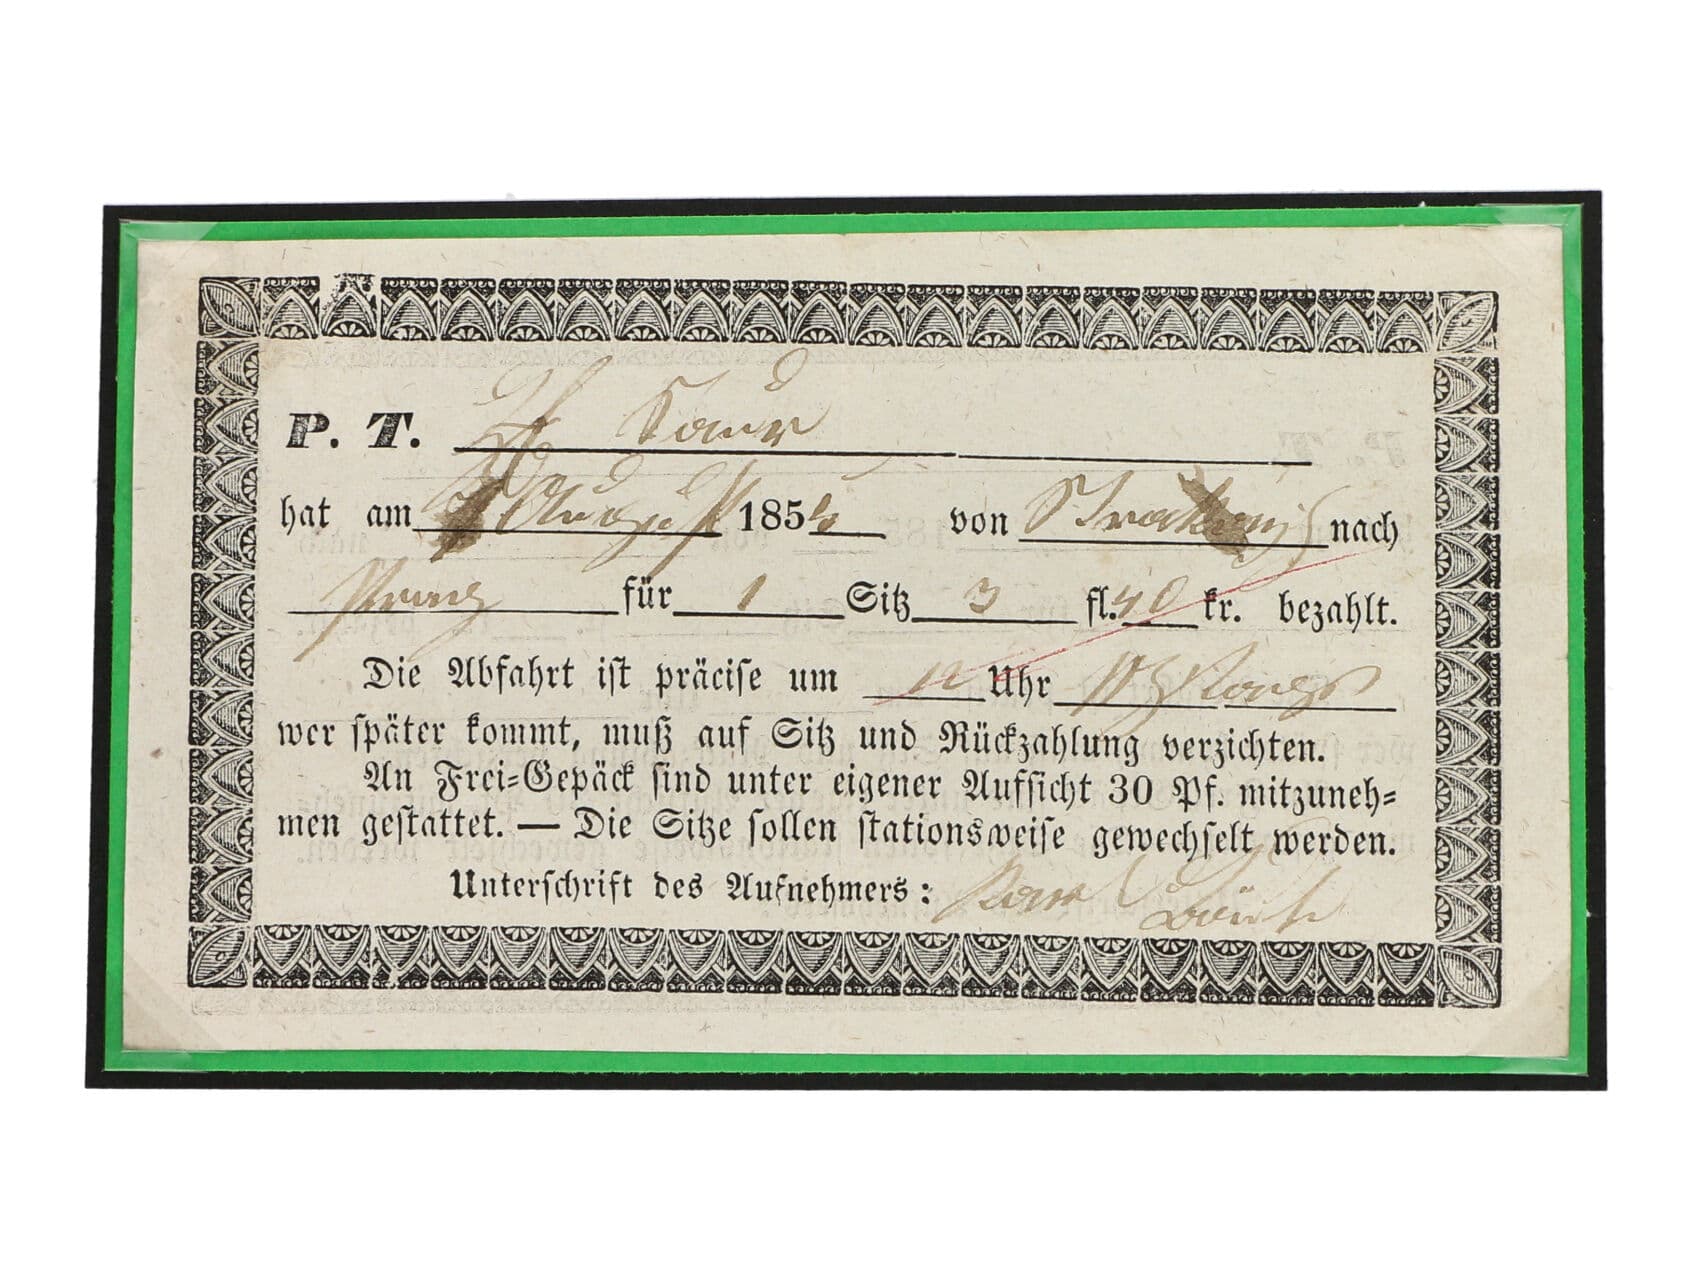 P. T. H Saur
hat am August 1854 von Strakonitz nach
Prag für 1 Sitz 3 fl. 40 kr. bezahlt.
Die Abfahrt ist präcise um 12 Uhr
wer später kommt, muß auf Sitz und Rückzahlung verzichten.
An Frei=Gepäck sind unter eigener Aufsicht 30 Pf. mitzuneh=
men gestattet. — Die Sitze sollen stationsweise gewechselt werden.
Unterschrift des Aufnehmers: Karl